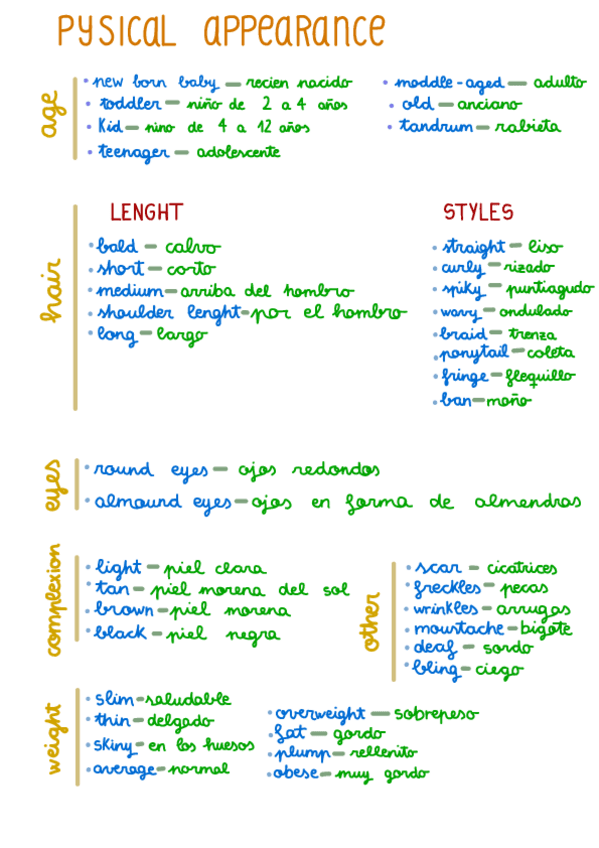 PYSICAL APPEARANCE
age
• new born baby — recien nacido
• toddler — niño de 2 a 4 años
• Kid — nino de 4 a 12 años
• teenager — adolescente
• meddle-aged — adulto
• old — anciano
• tandrum — rabieta
hair
LENGHT
• bald — calvo
• short — corto
• medium — arriba del hombro
• shoulder lenght — por el hombro
• long — largo
STYLES
• straight — liso
• curly — rizado
• spiky — puntiagudo
• wavy — ondulado
• braid — trenza
• ponytail — coleta
• fringe — flequillo
• ban — moño
eyes
• round eyes — ojos redondos
• almound eyes — ojos en forma de almendras
complexion
• light — piel clara
• tan — piel morena del sol
• brown — piel morena
• black — piel negra
other
• scar — cicatrices
• freckles — pecas
• wrinkles — arrugas
• moustache — bigote
• deaf — sordo
• bling — ciego
weight
• slim — saludable
• thin — delgado
• skiny — en los huesos
• average — normal
• overweight — sobrepeso
• fat — gordo
• plump — rellenito
• obese — muy gordo